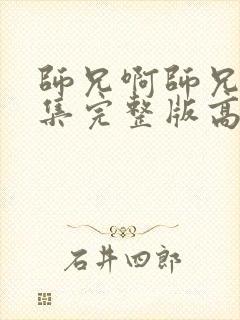 師兄啊師兄
集完整版高
石井四郎